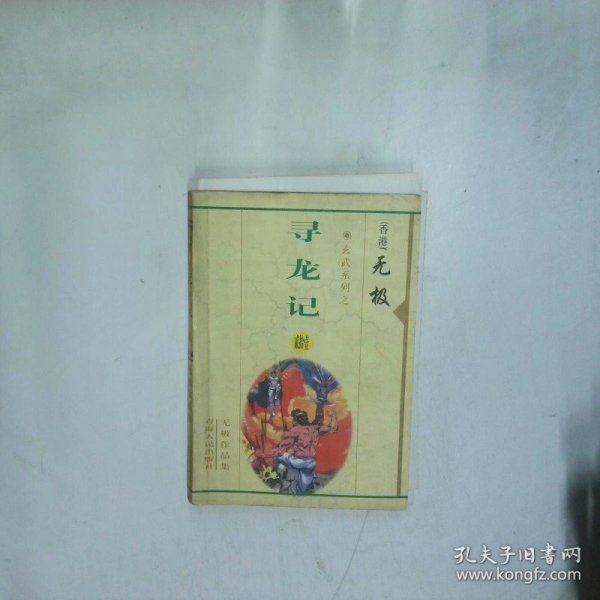 (香港)无极
玄武系列之
寻龙记
无极作品集
青海人民出版社
孔夫子旧书网
www.kongfz.com